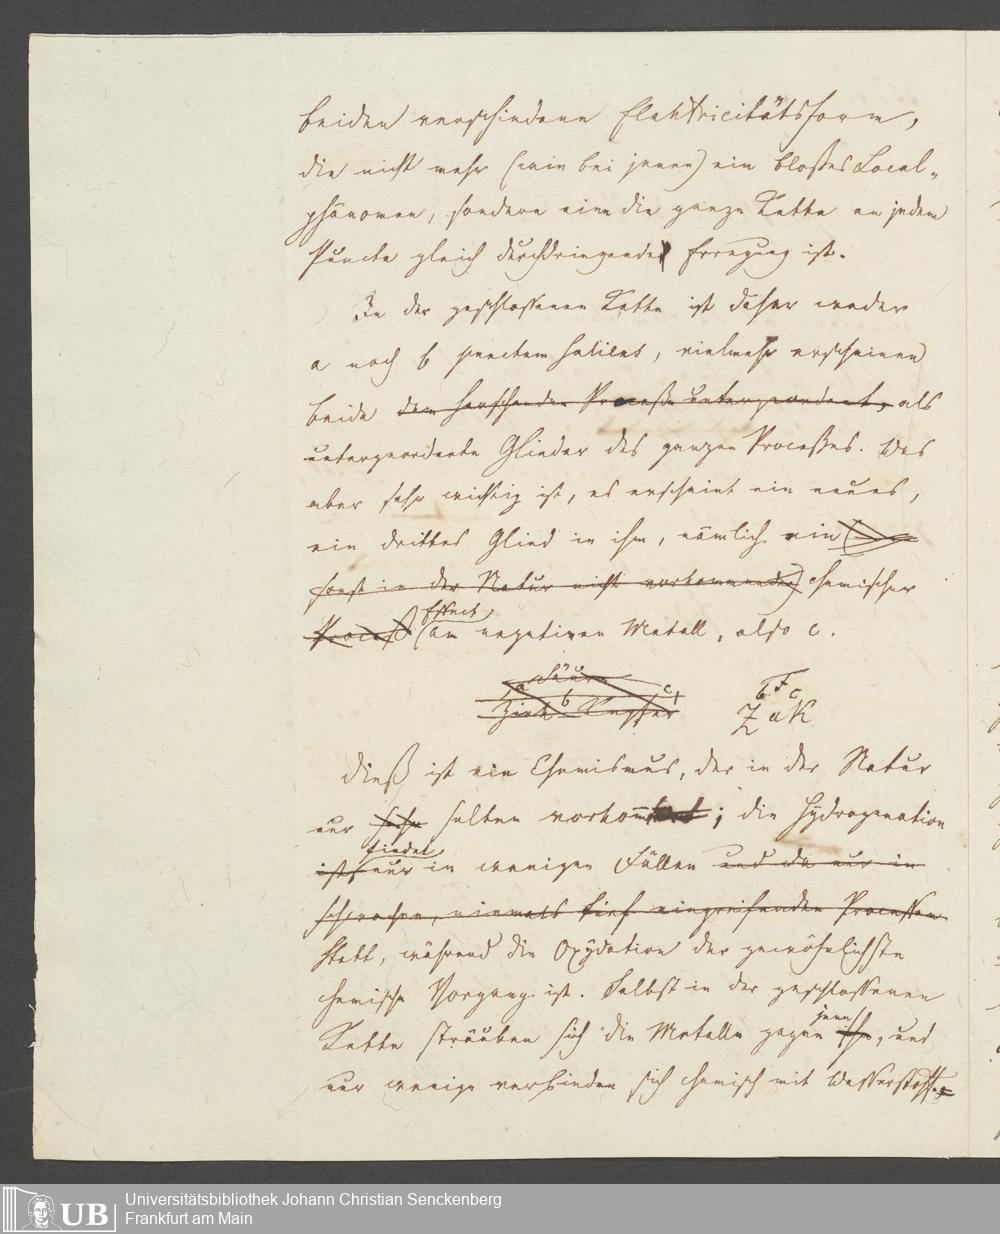 beiden verschiedene Elektricitätsform,
die nicht mehr (wie bei jenen) ein bloßes Local-
phänomen, sondern eine die ganze Kette an jedem
Puncte gleich durchdringende Erregung ist.
In der geschlossenen Kette ist daher weder
a noch b punctum saliens, vielmehr erscheinen
beide dem herrschenden Processe untergeordnet, als
untergeordnete Glieder des ganzen Processes. Was
aber sehr wichtig ist, es erscheint ein neues,
ein drittes Glied in ihm, nämlich ein (
sonst in der Natur nicht vorkommender) chemischer
Effect
Proceß (am negativen Metall, also c.
Säure
a b c
Zink Kupfer
F
b c
Z a K
Dieß ist ein Chemismus, der in der Natur
nur sehr selten vorkommt; die Hydrogenation
findet
ist nur in wenigen Fällen und da nur in
schwachen, niemals tief eingreifenden Processen
statt, während die Oxydation der gewöhnlichste
chemische Vorgang ist. Selbst in der geschlossenen
jene
Kette sträuben sich die Metalle gegen ihn, und
nur wenige verbinden sich chemisch mit Wasserstoff.
Universitätsbibliothek Johann Christian Senckenberg
UB Frankfurt am Main